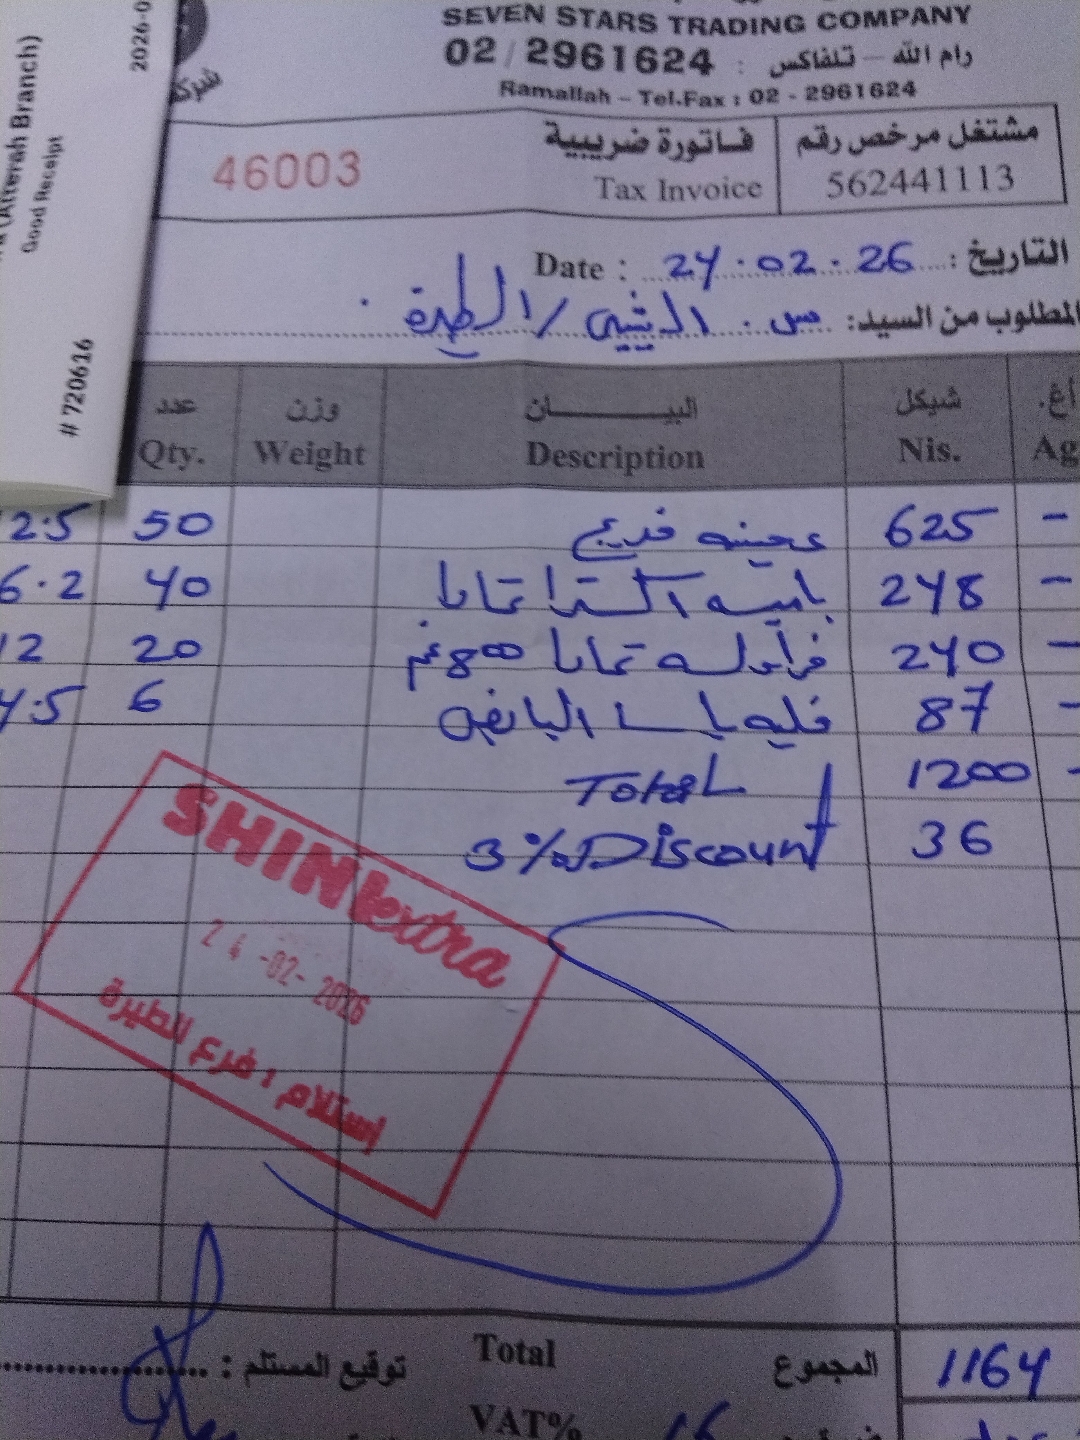 SEVEN STARS TRADING COMPANY
رام الله - تلفاكس : 02 / 2961624
Ramallah - Tel.Fax : 02 - 2961624
مشتغل مرخص رقم
562441113
فاتورة ضريبية
Tax Invoice
46003
التاريخ : 24.02.26 : Date
المطلوب من السيد: س. / الطيرة
أغ. شيكل البيـــان وزن عدد
Ag Nis. Description Weight Qty.
- 625 عجينه فريج 50 2.5
- 248 باميه اكسترا تمارا 40 6.2
- 240 فراوله تمارا 800غم 20 12
- 87 6 4.5
- 1200 Total
36 3% Discount
SHINI extra
24-02-2026
إستلام : فرع الطيرة
توقيع المستلم :
Total المجموع 1164
VAT% 16
Alterah Branch)
Good Receipt
2026-0
# 720616